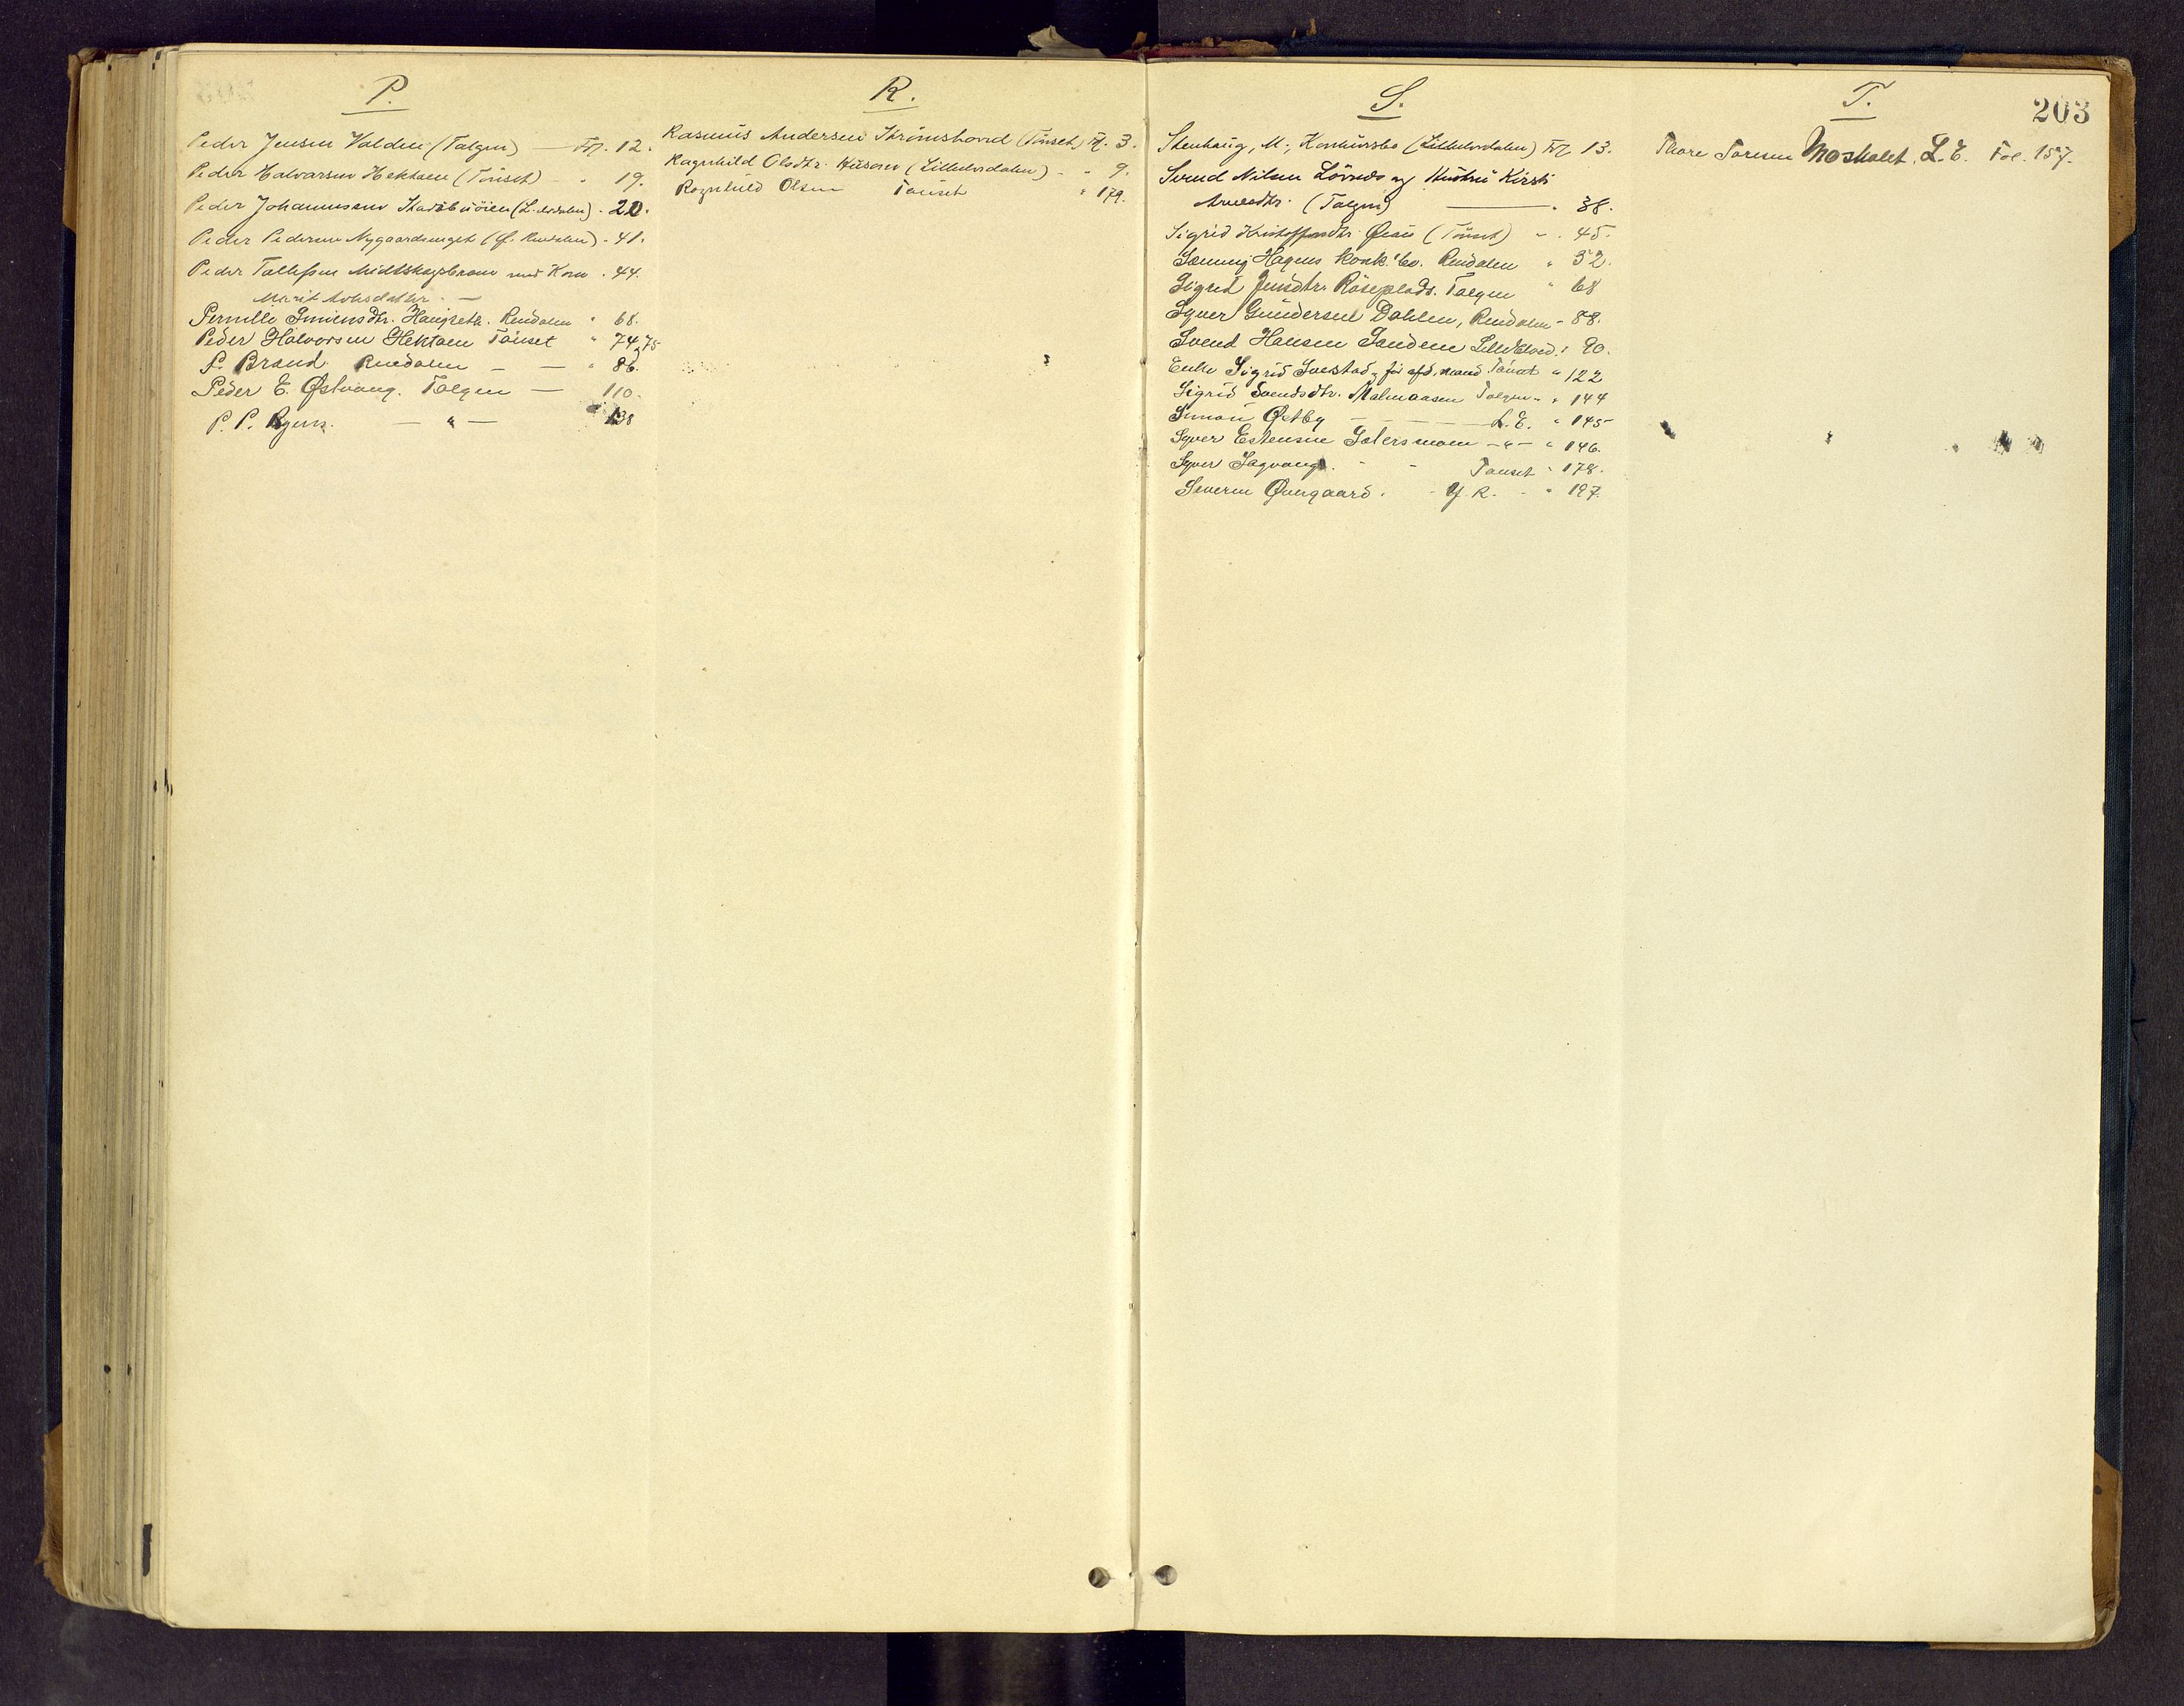 P.
Peder Jensen Valden (Tolgen) — Fol. 12.
Peder Halvorsen Hektoen (Tönset) - " 19.
Peder Johannesen Stadsbuöien (L. elvdalen) - 20.
Peder Pedersen Nygaardsenget (Ø. Rendalen) - 41.
Peder Tollefsen Midtskogsbraen med Kone . 44.
Marit
Pernille Simensdtr. Haugseth. Rendalen " 68.
Peder Halvorsen Hektoen Tönset " 74, 75
P. Brand. Rendalen — — " 86.
Peder E. Østvang. Tolgen — 110.
P. P. — " — " 138
R.
Rasmus Andersen Strömshoved (Tönset) Fol. 3.
Ragnhild Olsdtr. (Lilleelvdalen) - " 9.
Ragnhild Olsen Tönset " 179.
S.
Stenhaug, M., Konkursbo (Lilleelvdalen) Fol 13.
Svend Nilsen og Hustru Kirsti
(Tolgen) — " 38.
Sigrid Kristoffersdtr. (Tönset) - " 45.
Hagens Konk. bo. Rendalen " 52.
Sigrid Jensdtr. Röseplads. Tolgen " 68
Syver Gundersen Dahlen, Rendalen - 88.
Svend Hansen Sandeen Lilleelvd. " 90.
Enke Sigrid og for afd. mand Tönset " 122
Sigrid Svendsdtr. Malmaasen Tolgen - " 144
Simon Østby — — L. E. " 145
Syver Estensen Satersmoen — " — " 146.
Syver Sagvang. - - Tönset " 178.
Severin Øvergaard. - Y. R. - " 197.
T.
203
Thore Toresen Moskalet. L. E. Fol. 157.